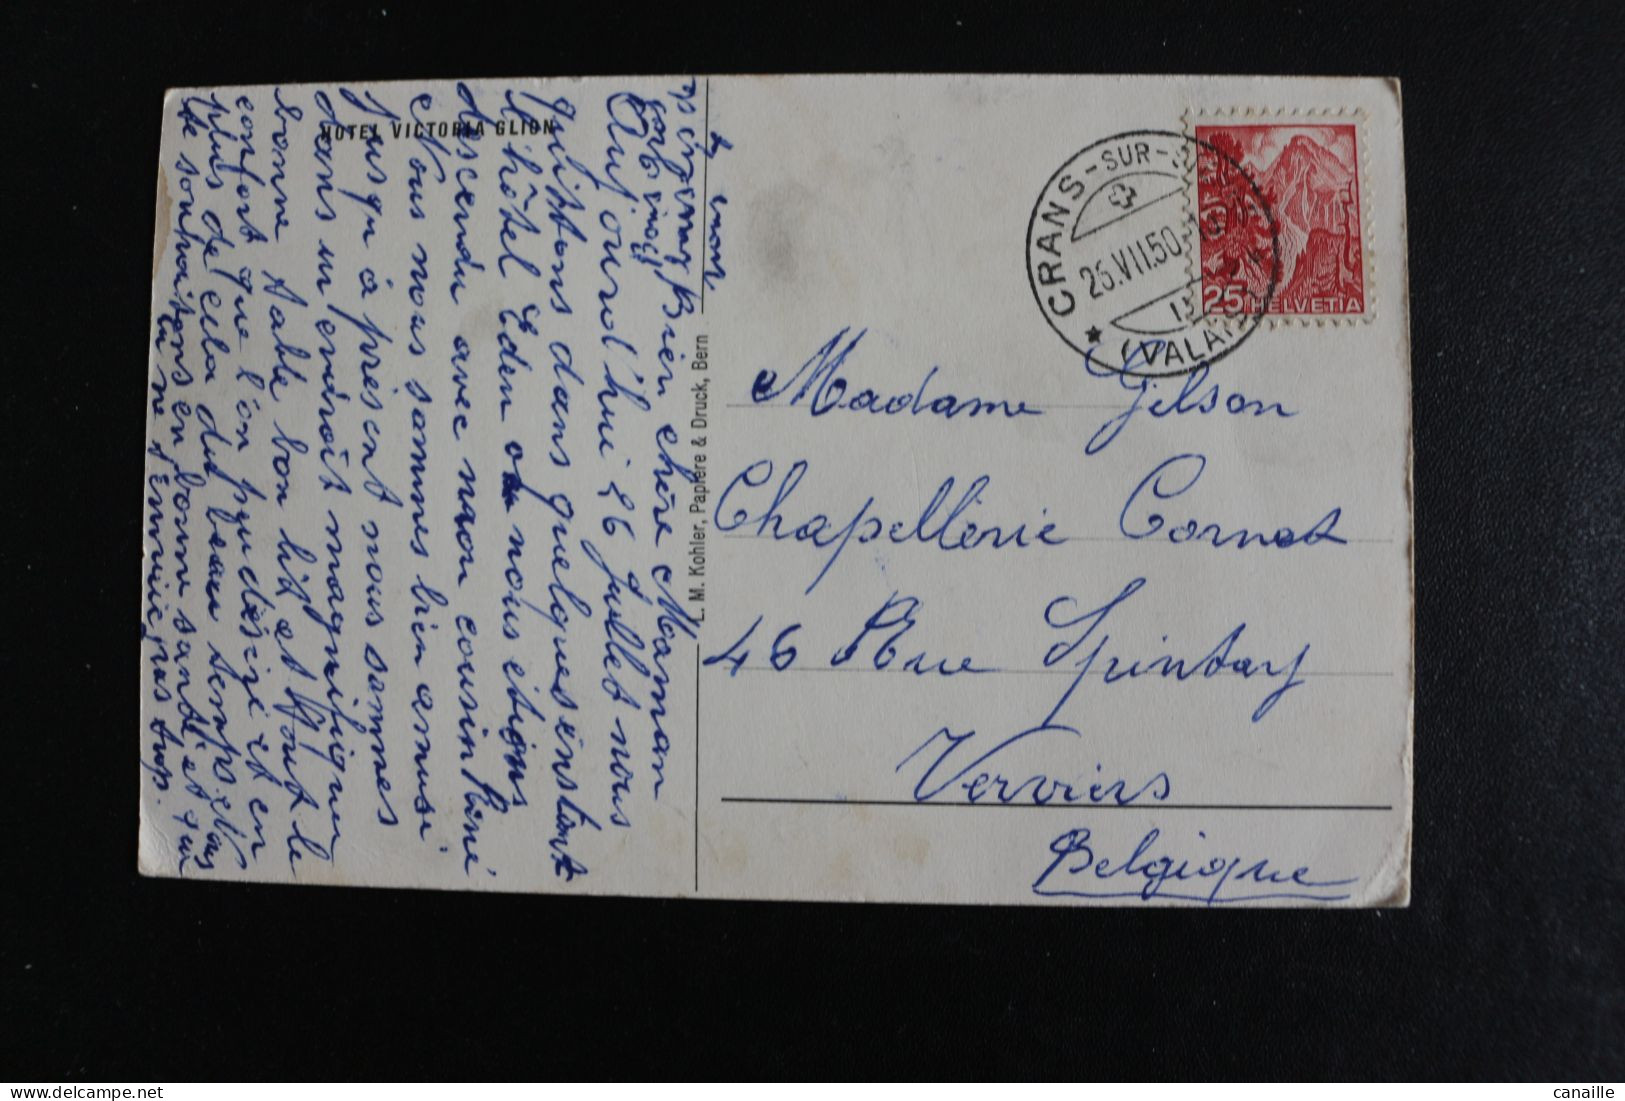 HOTEL VICTORIA GLION
Bien chère Maman
Aujourd'hui 26 juillet nous
quittons dans quelques instant
l'hôtel Eden où nous étions
descendu avec mon cousin René
Nous nous sommes bien amusé
jusqu'à présent nous sommes
dans un endroit magnifique
bonne table bon lit et tout le
confort que l'on peu désiré et en
plus de cela du beau temps.
te souhaitons en bonne santé et que
tu ne t'ennuie pas trop.
L. M. Kohler, Papiere & Druck, Bern
CRANS-SUR-S
25.VII.50
(VALAIS)
25 HELVETIA
Madame Gilson
Chapellerie Cornet
46 Rue Spintay
Verviers
Belgique
canaille